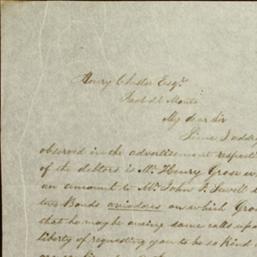 Henry Chester Esqr
My dear Sir
Since I addre
observed in the advertisement respecti
of the debtors is Mr. Henry Grose w
an amount to Mr. John F. Sewell
two Bonds on which Gro
that he may during same calls upo
liberty of requesting you to be so kind